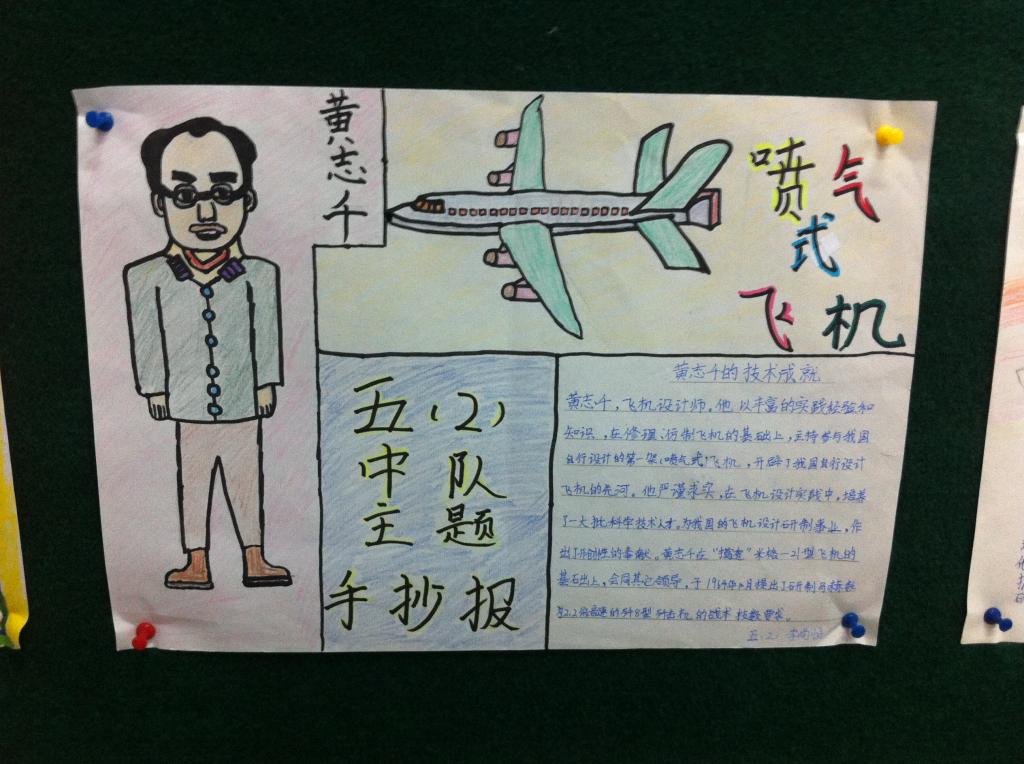 黄志千
喷气
式
飞机
五(2)
中队
主题
手抄报
黄志千的技术成就
黄志千,飞机设计师。他以丰富的实践经验和
知识,在修理、仿制飞机的基础上,主持参与我国
自行设计的第一架(喷气式)飞机,开辟了我国自行设计
飞机的先河。他严谨求实,在飞机设计实践中,培养
了一大批科学技术人才。为我国的飞机设计研制事业,作
出了开创性的奉献。黄志千在“摸透”米格-21型飞机的
基石出上,会同其它领导,于1964年10月提出了研制
2.2倍音速的歼8型歼击机的战术技数要求。
五.2.